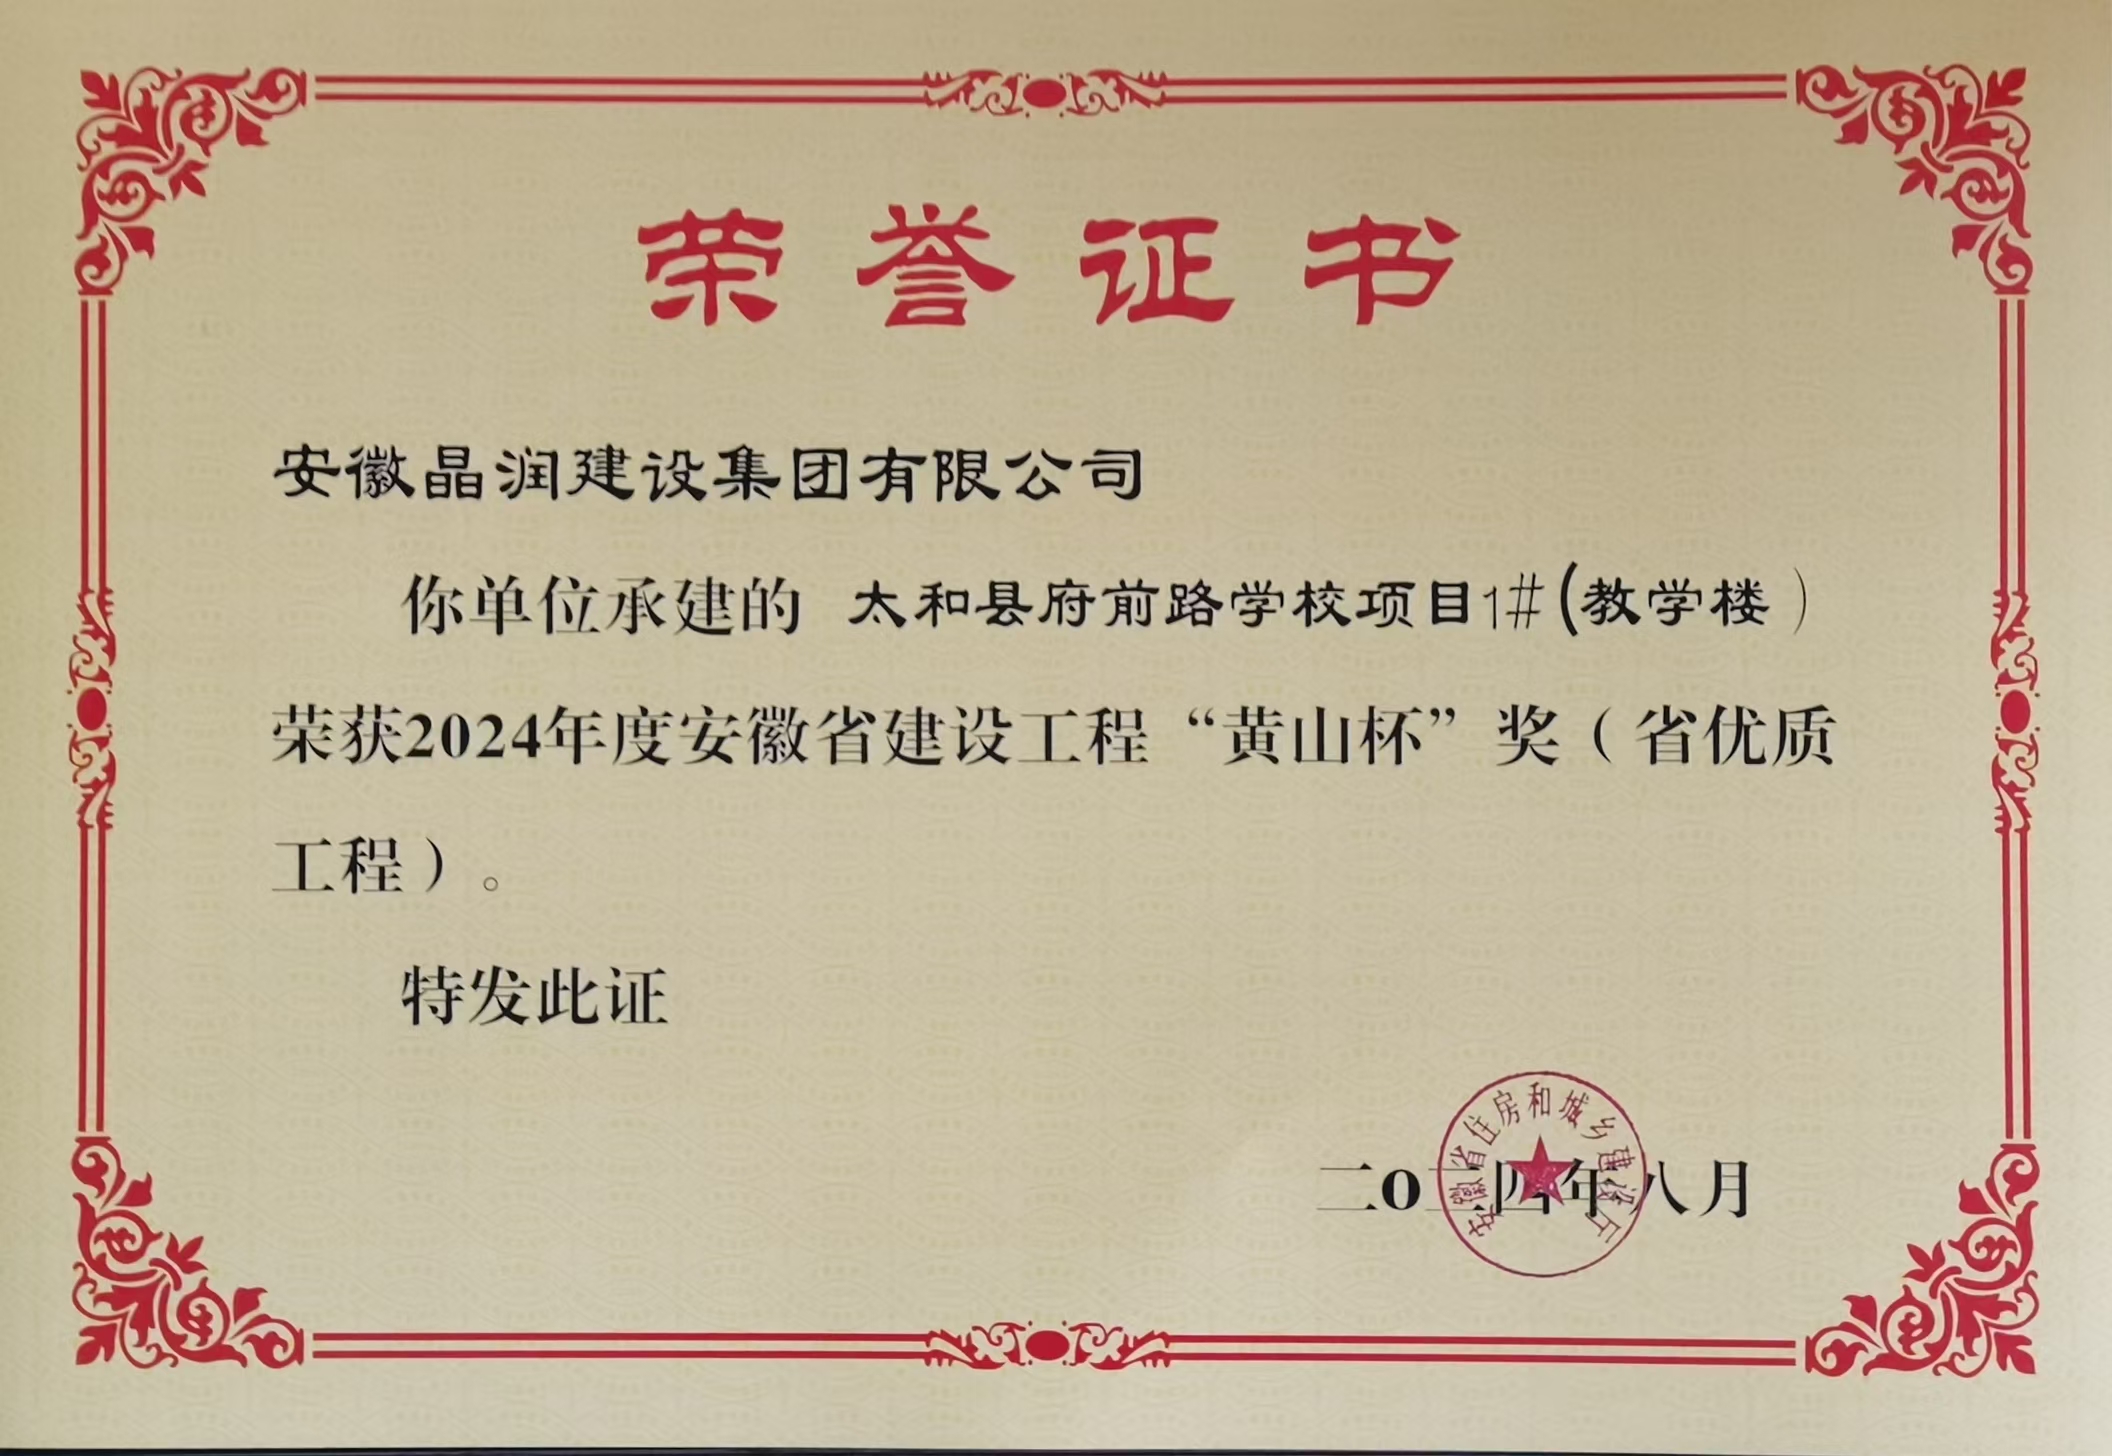 荣誉证书
安徽晶润建设集团有限公司
你单位承建的 太和县府前路学校项目1#(教学楼）
荣获2024年度安徽省建设工程“黄山杯”奖（省优质
工程）。
特发此证
安徽省住房和城乡建设厅
二0二四年八月